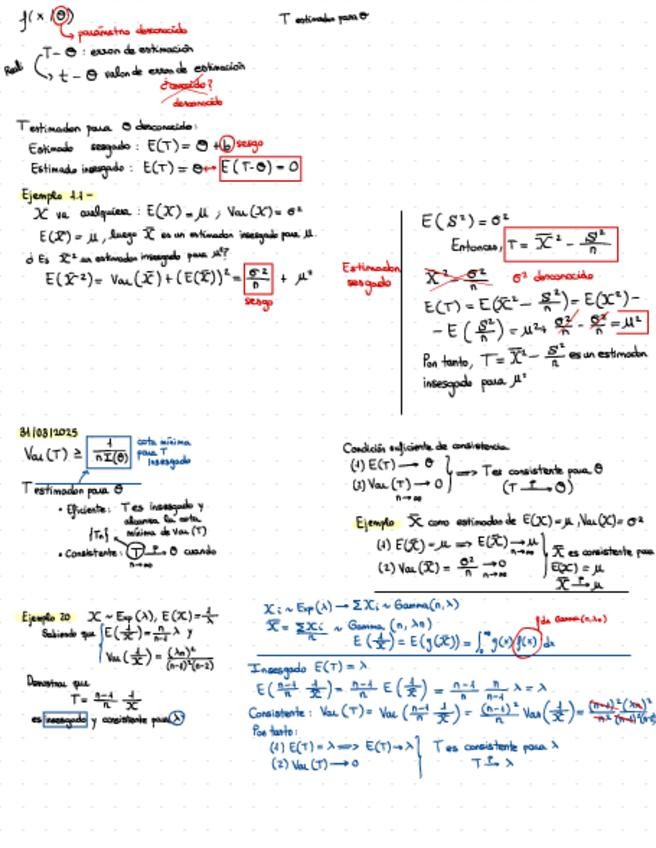 f(x|θ)
parámetro desconocido
T estimador para θ
T - θ : error de estimación
Real
t - θ valor de error de estimación
¿Conocido?
desconocido
T estimador para θ desconocido:
Estimado sesgado : E(T) = θ + b sesgo
Estimado insesgado : E(T) = θ ↔ E(T-θ) = 0
Ejemplo 1.1 -
X va cualquiera : E(X) = μ ; Var(X) = σ²
E(X̄) = μ, luego X̄ es un estimador insesgado para μ.
¿ Es X̄² un estimador insesgado para μ²?
E(X̄²) = Var(X̄) + (E(X̄))² = σ²/n + μ²
sesgo
Estimador sesgado
E(S²) = σ²
Entonces, T = X̄² - S²/n
X̄² - σ²/n σ² desconocido
E(T) = E(X̄² - S²/n) = E(X̄²) -
- E(S²/n) = μ² + σ²/n - σ²/n = μ²
Por tanto, T = X̄² - S²/n es un estimador
insesgado para μ²
31/03/2025
Var(T) ≥ 1/(nI(θ))
cota mínima
para T
Insesgado
T estimador para θ
• Eficiente: T es insesgado y
alcanza la cota
mínima de Var(T)
{Tn}
• Consistente: T →ᴾ θ cuando
n→∞
Condición suficiente de consistencia
(1) E(T) → θ
(2) Var(T) → 0
n→∞
⟹ T es consistente para θ
(T →ᴾ θ)
Ejemplo X̄ como estimador de E(X) = μ, Var(X) = σ²
(1) E(X̄) = μ ⟹ E(X̄) → μ
n→∞
(2) Var(X̄) = σ²/n → 0
n→∞
X̄ es consistente para
E(X) = μ
X̄ →ᴾ μ
Ejemplo 20 X ~ Exp(λ), E(X) = 1/λ
Sabiendo que E(1/X̄) = n/(n-1) λ y
Var(1/X̄) = (λn)²/((n-1)²(n-2))
Demostrar que
T = (n-1)/n 1/X̄
es insesgado y consistente para λ
Xi ~ Exp(λ) → ΣXi ~ Gamma(n, λ)
X̄ = ΣXi/n ~ Gamma(n, λn)
f da Gamma(n, λn)
E(1/X̄) = E(g(X̄)) = ∫₀^∞ g(x) f(x) dx
Insesgado E(T) = λ
E((n-1)/n 1/X̄) = (n-1)/n E(1/X̄) = (n-1)/n n/(n-1) λ = λ
Consistente : Var(T) = Var((n-1)/n 1/X̄) = (n-1)²/n² Var(1/X̄) = (n-1)²/n² (λn)²/((n-1)²(n-2))
Por tanto:
(1) E(T) = λ ⟹ E(T) → λ
(2) Var(T) → 0
T es consistente para λ
T →ᴾ λ